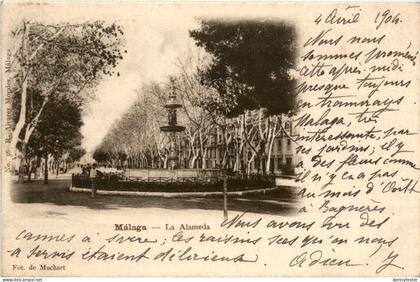 4 Avril 1904.
Nous nous
sommes promenés
cette après-midi
presque toujours
en tramways
Malaga, très
intéressante, par
ses jardins; il y
a des fleurs comme
au mois d'Août
à Bagnères
Nous avons vu des
cannes à sucre; les raisins secs que nous
a servis étaient délicieux.
Adieu
Málaga — La Alameda
Fot. de Muchart
N.º 36 - R. Alvarez Morales - Málaga
www.bennyferriere.com